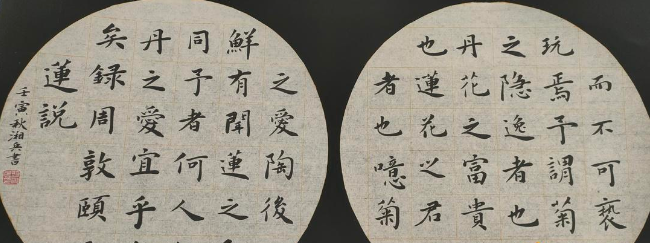 而不可褻
玩焉予謂菊
之隐逸者也
丹花之富貴
也蓮花之君
者也噫菊
之愛陶後
鮮有聞蓮之
同予者何人
丹之愛宜乎
矣録周敦頤
蓮説
壬寅秋湘兵書